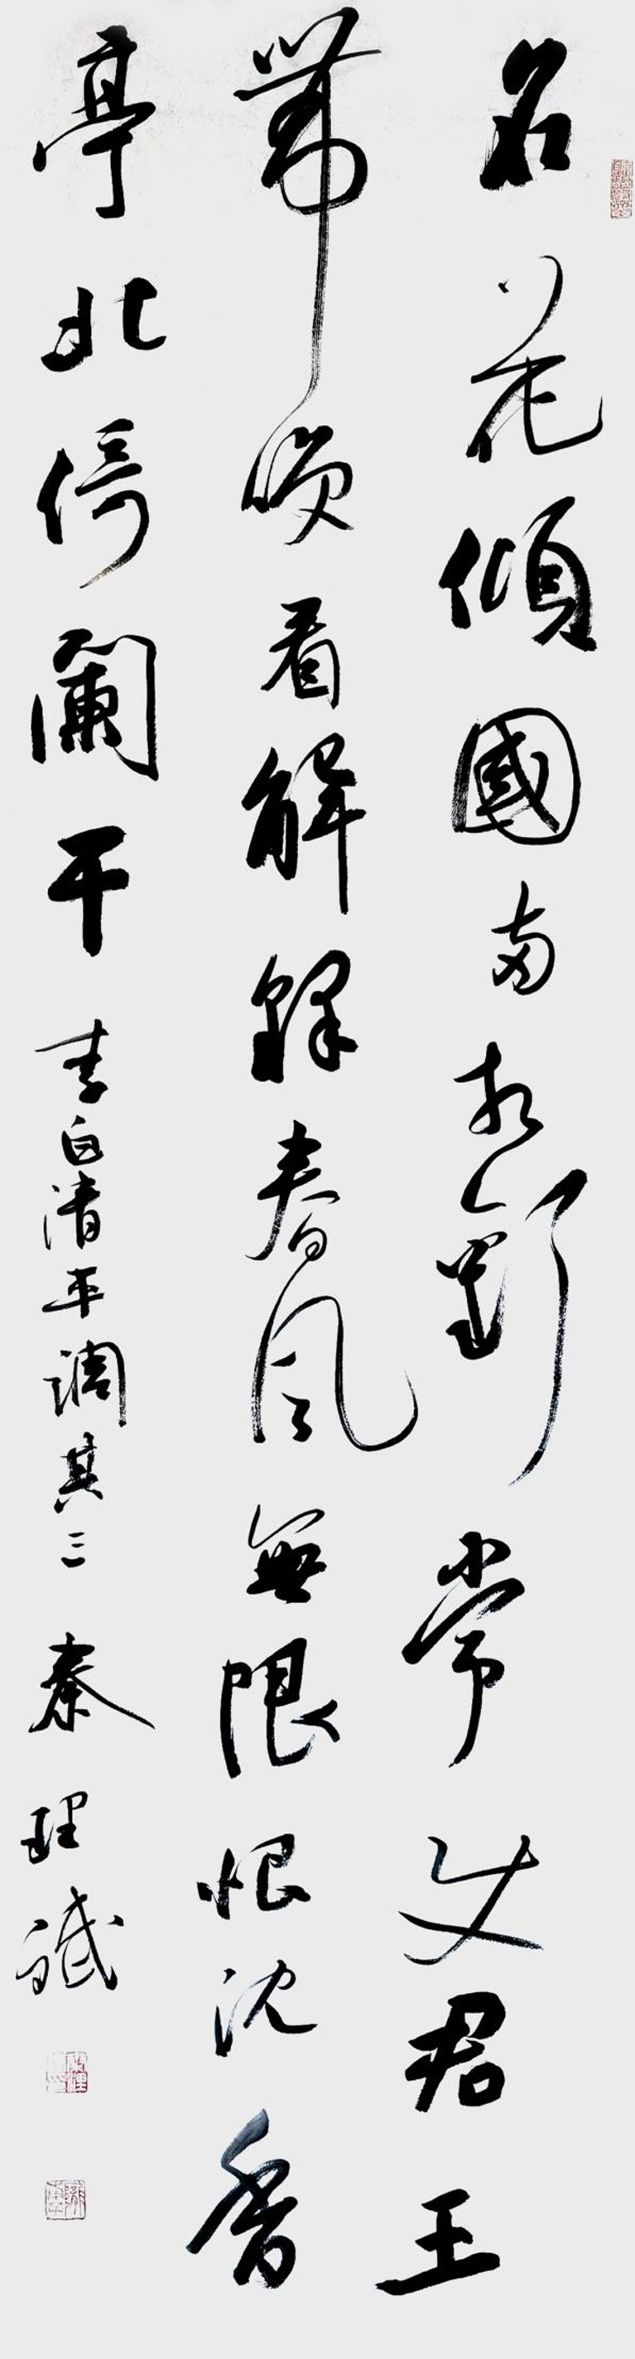 名花傾國両相歡常君王
帶咲看解釋春風無限恨沈香
亭北倚闌干 李白清平調其三 秦理